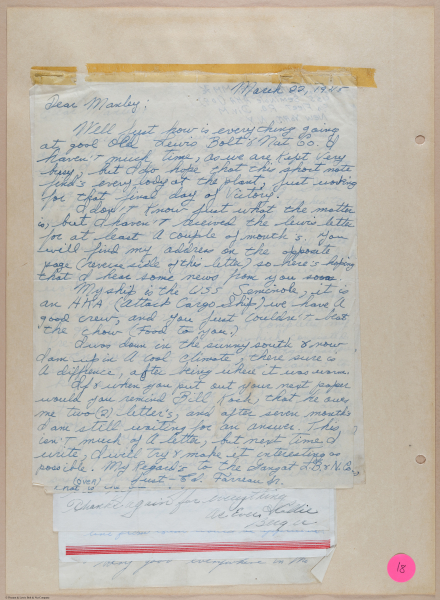 March 22, 1945
Dear Manley;
Well just how is everything going
at good Old Lewis Bolt & Nut Co. I
haven't much time, as we are kept very
busy, but I do hope that this short note
find's everybody at the plant, just working
for that final day of Victory.
I don't know just what the matter
is, but I haven't received the lewis letter
for at least A couple of month's, you
will find my address on the opposite
page (reverse side of this letter) so here's hoping
that I hear some news from you soon.
My ship is the U.S.S. Seminole, it is
an AKA (Attack Cargo Ship) we have A
good crew, and you just couldn't beat
the chow (Food to you.)
I was down in the sunny south & now
I am up in A cool climate, there sure is
A difference, after being where it was warm.
If & when you put out your next paper
would you remind Bill Kock that he owes
me two (2) letter's, and after seven months
I am still waiting for an answer. This
isn't much of A letter, but next time I
write, I will try & make it interesting as
possible. My Regards to the Gang at L.B. & N. Co.
(over) Just - Ed. Farreau Jr.
not is the
Thanks again for everything
As Ever
everywhere in the
18